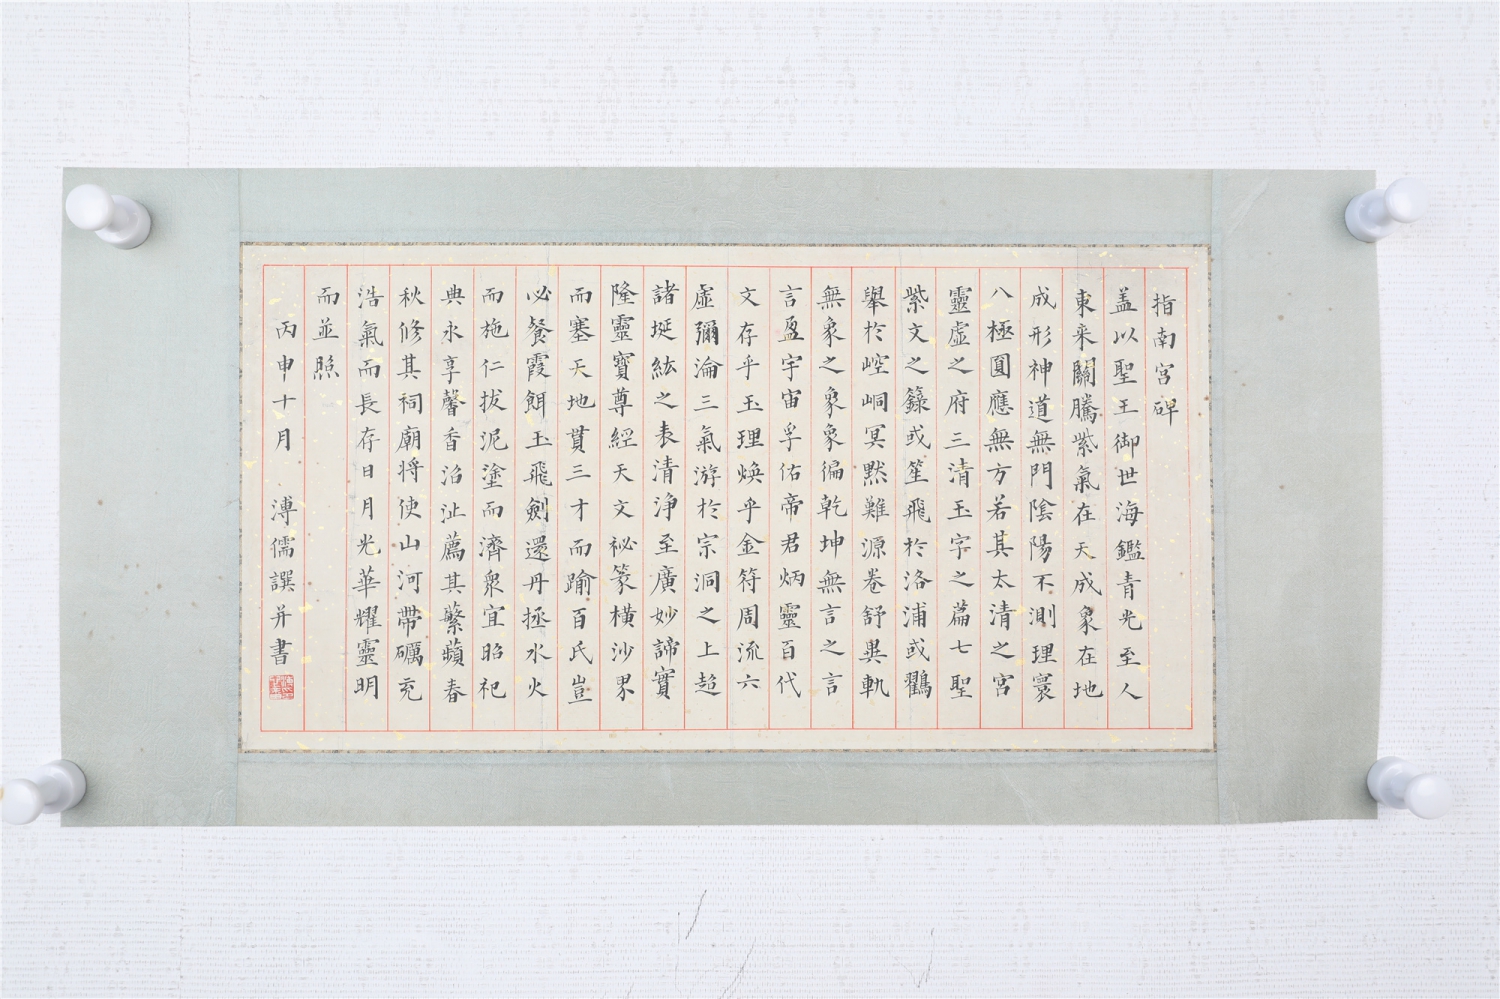 指南宮碑
蓋以聖王御世海鑑青光至人
東来關騰紫氣在天成象在地
成形神道無門陰陽不測理寰
八極圓應無方若其太清之宮
靈虛之府三清玉字之篇七聖
紫文之籙或笙飛於洛浦或鸛
舉於崆峒冥默難源卷舒異軌
無象之象象徧乾坤無言之言
言盈宇宙孚佑帝君炳靈百代
文存乎玉理煥乎金符周流六
虛彌淪三氣游於宗洞之上超
諸埏紘之表清淨至廣妙諦實
隆靈寶尊經天文祕篆橫沙界
而塞天地貫三才而踰百氏豈
必餐霞餌玉飛劍還丹拯水火
而施仁拔泥塗而濟衆宜昭祀
典永享馨香沼沚薦其蘩蘋春
秋修其祠廟将使山河帶礪充
浩氣而長存日月光華耀靈明
而並照
丙申十月 溥儒譔并書